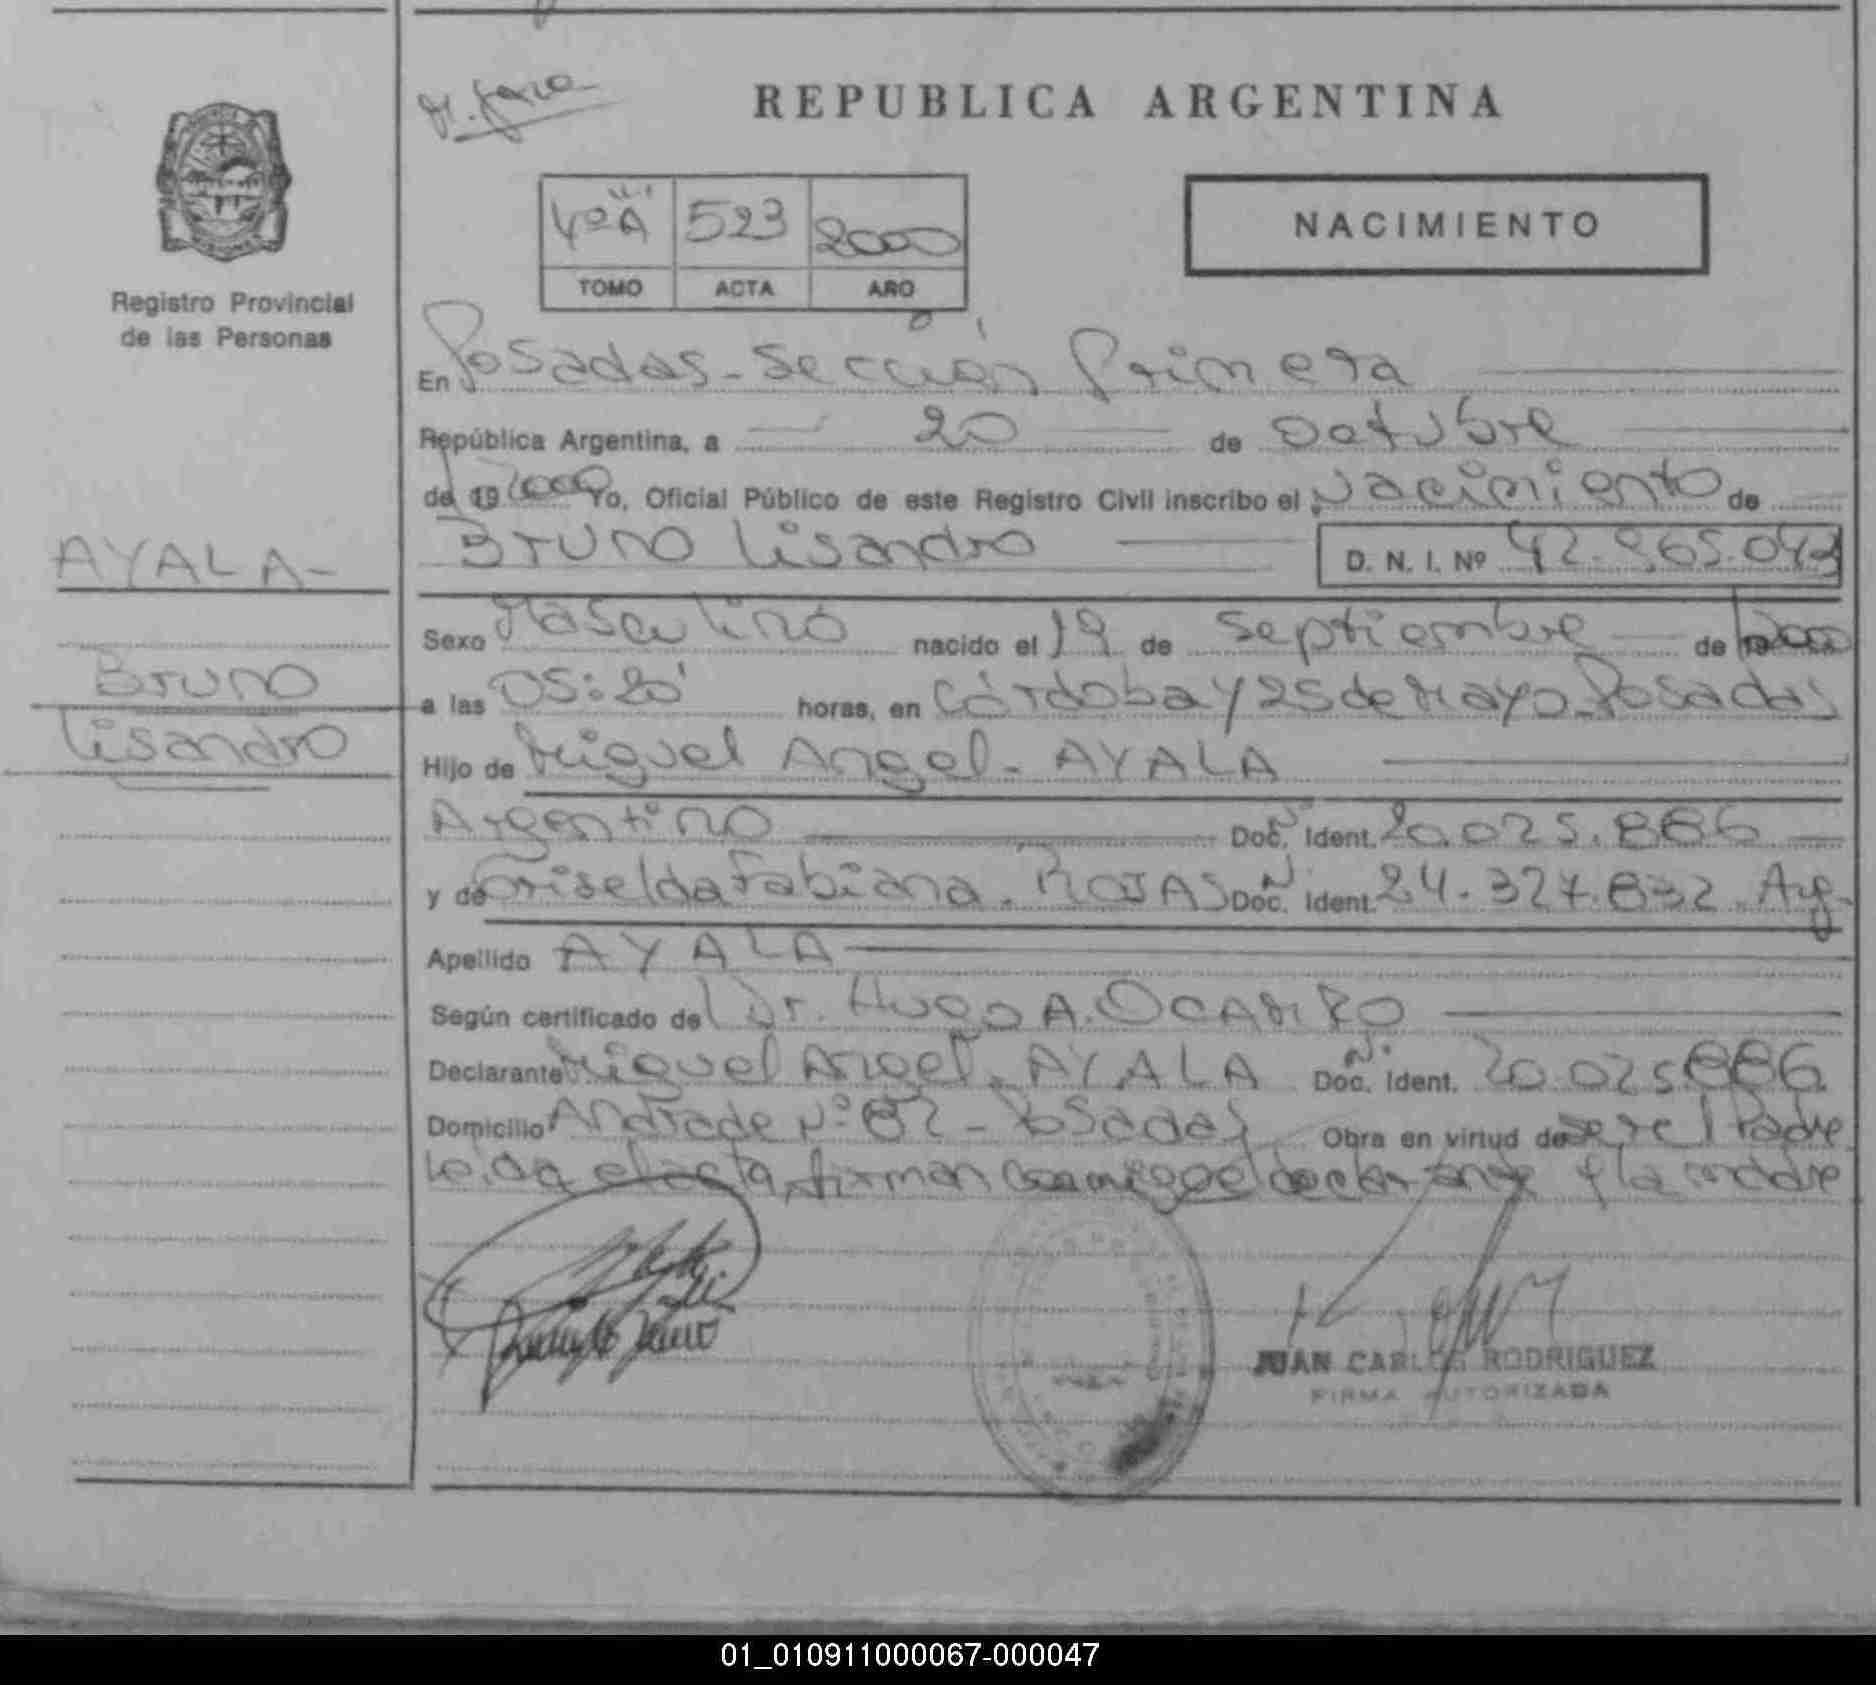 REPUBLICA ARGENTINA
4º "A" 523 2000
TOMO ACTA AÑO
NACIMIENTO
Registro Provincial
de las Personas
En Posadas - Sección Primera
República Argentina, a 20 de Octubre
de 19 2000 Yo, Oficial Público de este Registro Civil inscribo el Nacimiento de
Bruno Lisandro D. N. I. Nº 42.965.043
AYALA -
Bruno
Lisandro
Sexo Masculino nacido el 19 de Septiembre de 2000
a las 05:20' horas, en Córdoba y 25 de Mayo - Posadas
Hijo de Miguel Angel - AYALA
Argentino Doc. Ident. Nº 20.025.886
y de Griselda Fabiana. ROJAS Doc. Ident. Nº 24.327.832 Arg.
Apellido AYALA
Según certificado del Dr. Hugo A. OCAMPO
Declarante Miguel Angel. AYALA Doc. Ident. Nº 20.025.886
Domicilio Andrade Nº 82 - Posadas Obra en virtud de ser el Padre
Leída el acta, firman conmigo el declarante y la madre
JUAN CARLOS RODRIGUEZ
FIRMA AUTORIZADA
01_010911000067-000047